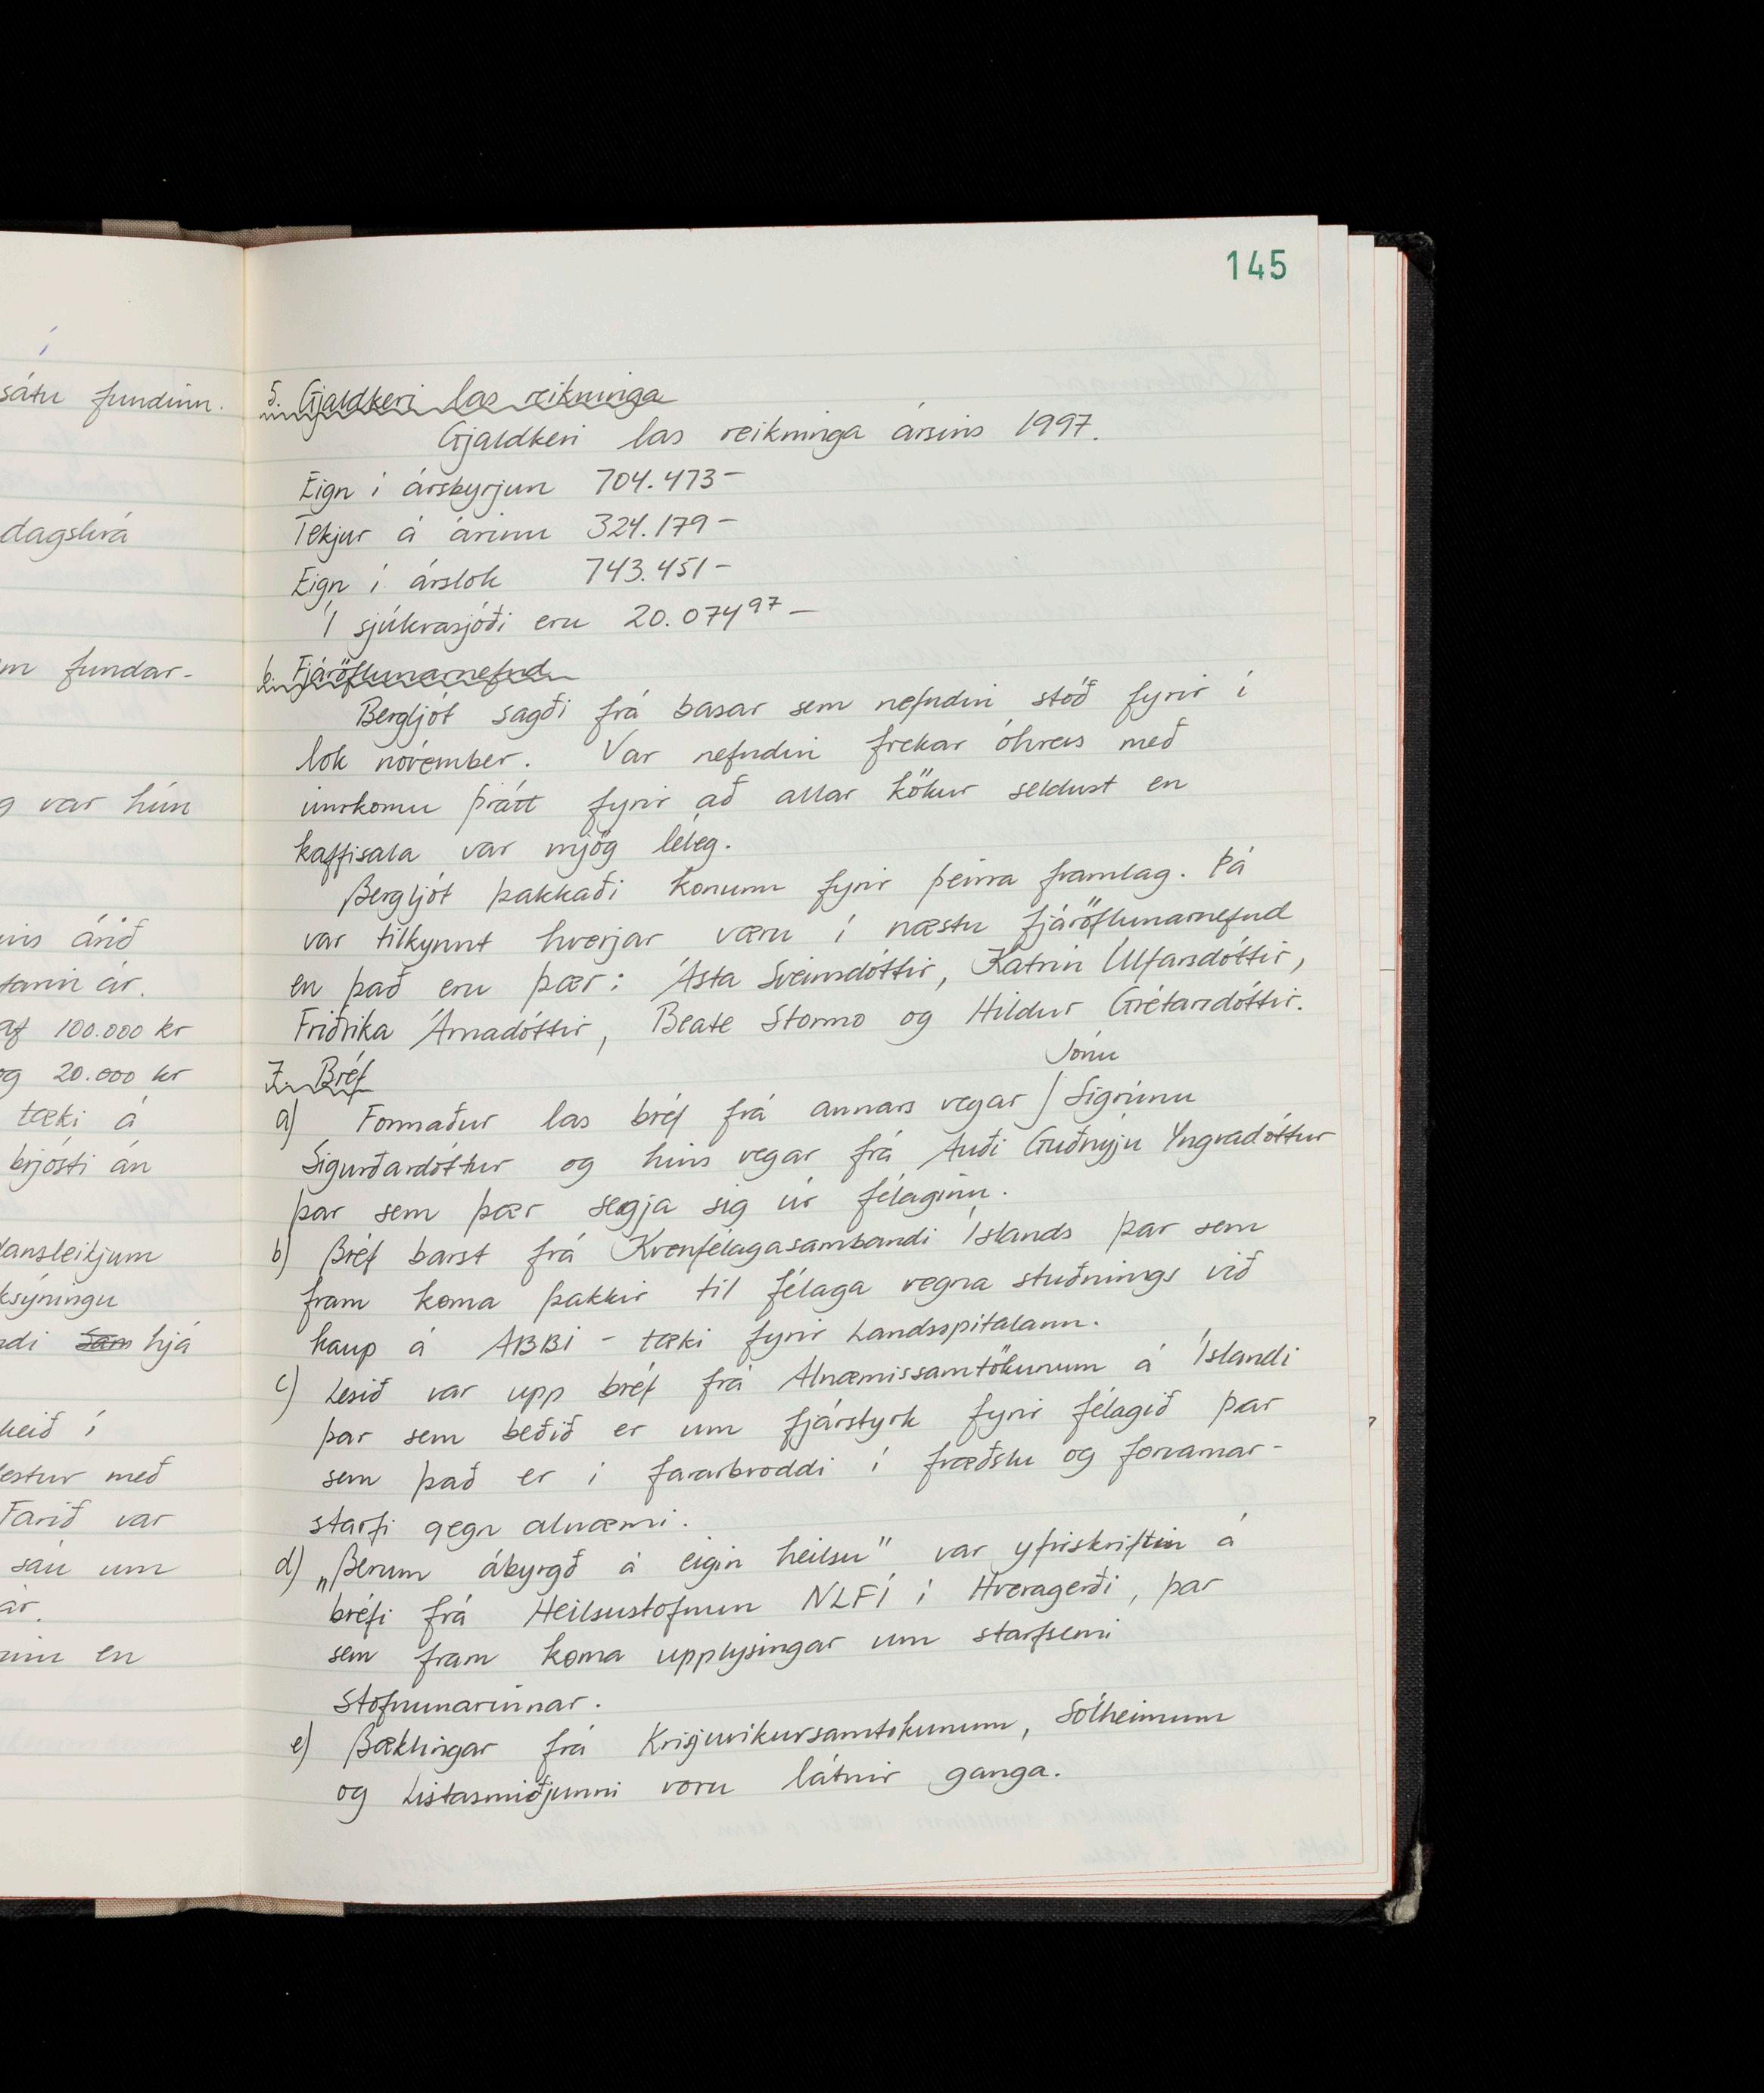 sátu fundinn.
dagskrá
fundar-
var hún
árið
ár.
100.000 kr
og 20.000 kr
tæki á
brjósti án
hjá
með
Farið var
sáu um
ár.
en
145
5. Gjaldkeri las reikninga
Gjaldkeri las reikninga ársins 1997.
Eign í ársbyrjun 704.473-
Tekjur á árinu 324.179-
Eign í árslok 743.451-
Í sjúkrasjóði eru 20.074 97 -
6. Fjáröflunarnefnd
Bergljót sagði frá basar sem nefndin stóð fyrir í
lok nóvember. Var nefndin frekar óhress með
innkomu þrátt fyrir að allar kökur seldust en
kaffisala var mjög léleg.
Bergljót þakkaði konum fyrir þeirra framlag. Þá
var tilkynnt hverjar væru í næstu fjáröflunarnefnd
en það eru þær: Ásta Sveinsdóttir, Katrín Úlfarsdóttir,
Friðrika Árnadóttir, Beate Stormo og Hildur Grétarsdóttir.
7. Bréf
Jónu
a) Formaður las bréf frá annars vegar / Sigrúnu
Sigurðardóttur og hins vegar frá Auði Guðnýju Yngvadóttur
þar sem þær segja sig úr félaginu.
b) Bréf barst frá Kvenfélagasambandi Íslands þar sem
fram koma þakkir til félaga vegna stuðnings við
kaup á ABBI - tæki fyrir Landsspítalann.
c) Lesið var upp bréf frá Alnæmissamtökunum á Íslandi
þar sem beðið er um fjárstyrk fyrir félagið þar
sem það er í fararbroddi í fræðslu og forvarnar-
starfi gegn alnæmi.
d) „Berum ábyrgð á eigin heilsu" var yfirskriftin á
bréfi frá Heilsustofnun NLFÍ í Hveragerði, þar
sem fram koma upplýsingar um starfsemi
stofnunarinnar.
e) Bæklingar frá Krísuvíkursamtökunum, Sólheimum
og Listasmiðjunni voru látnir ganga.